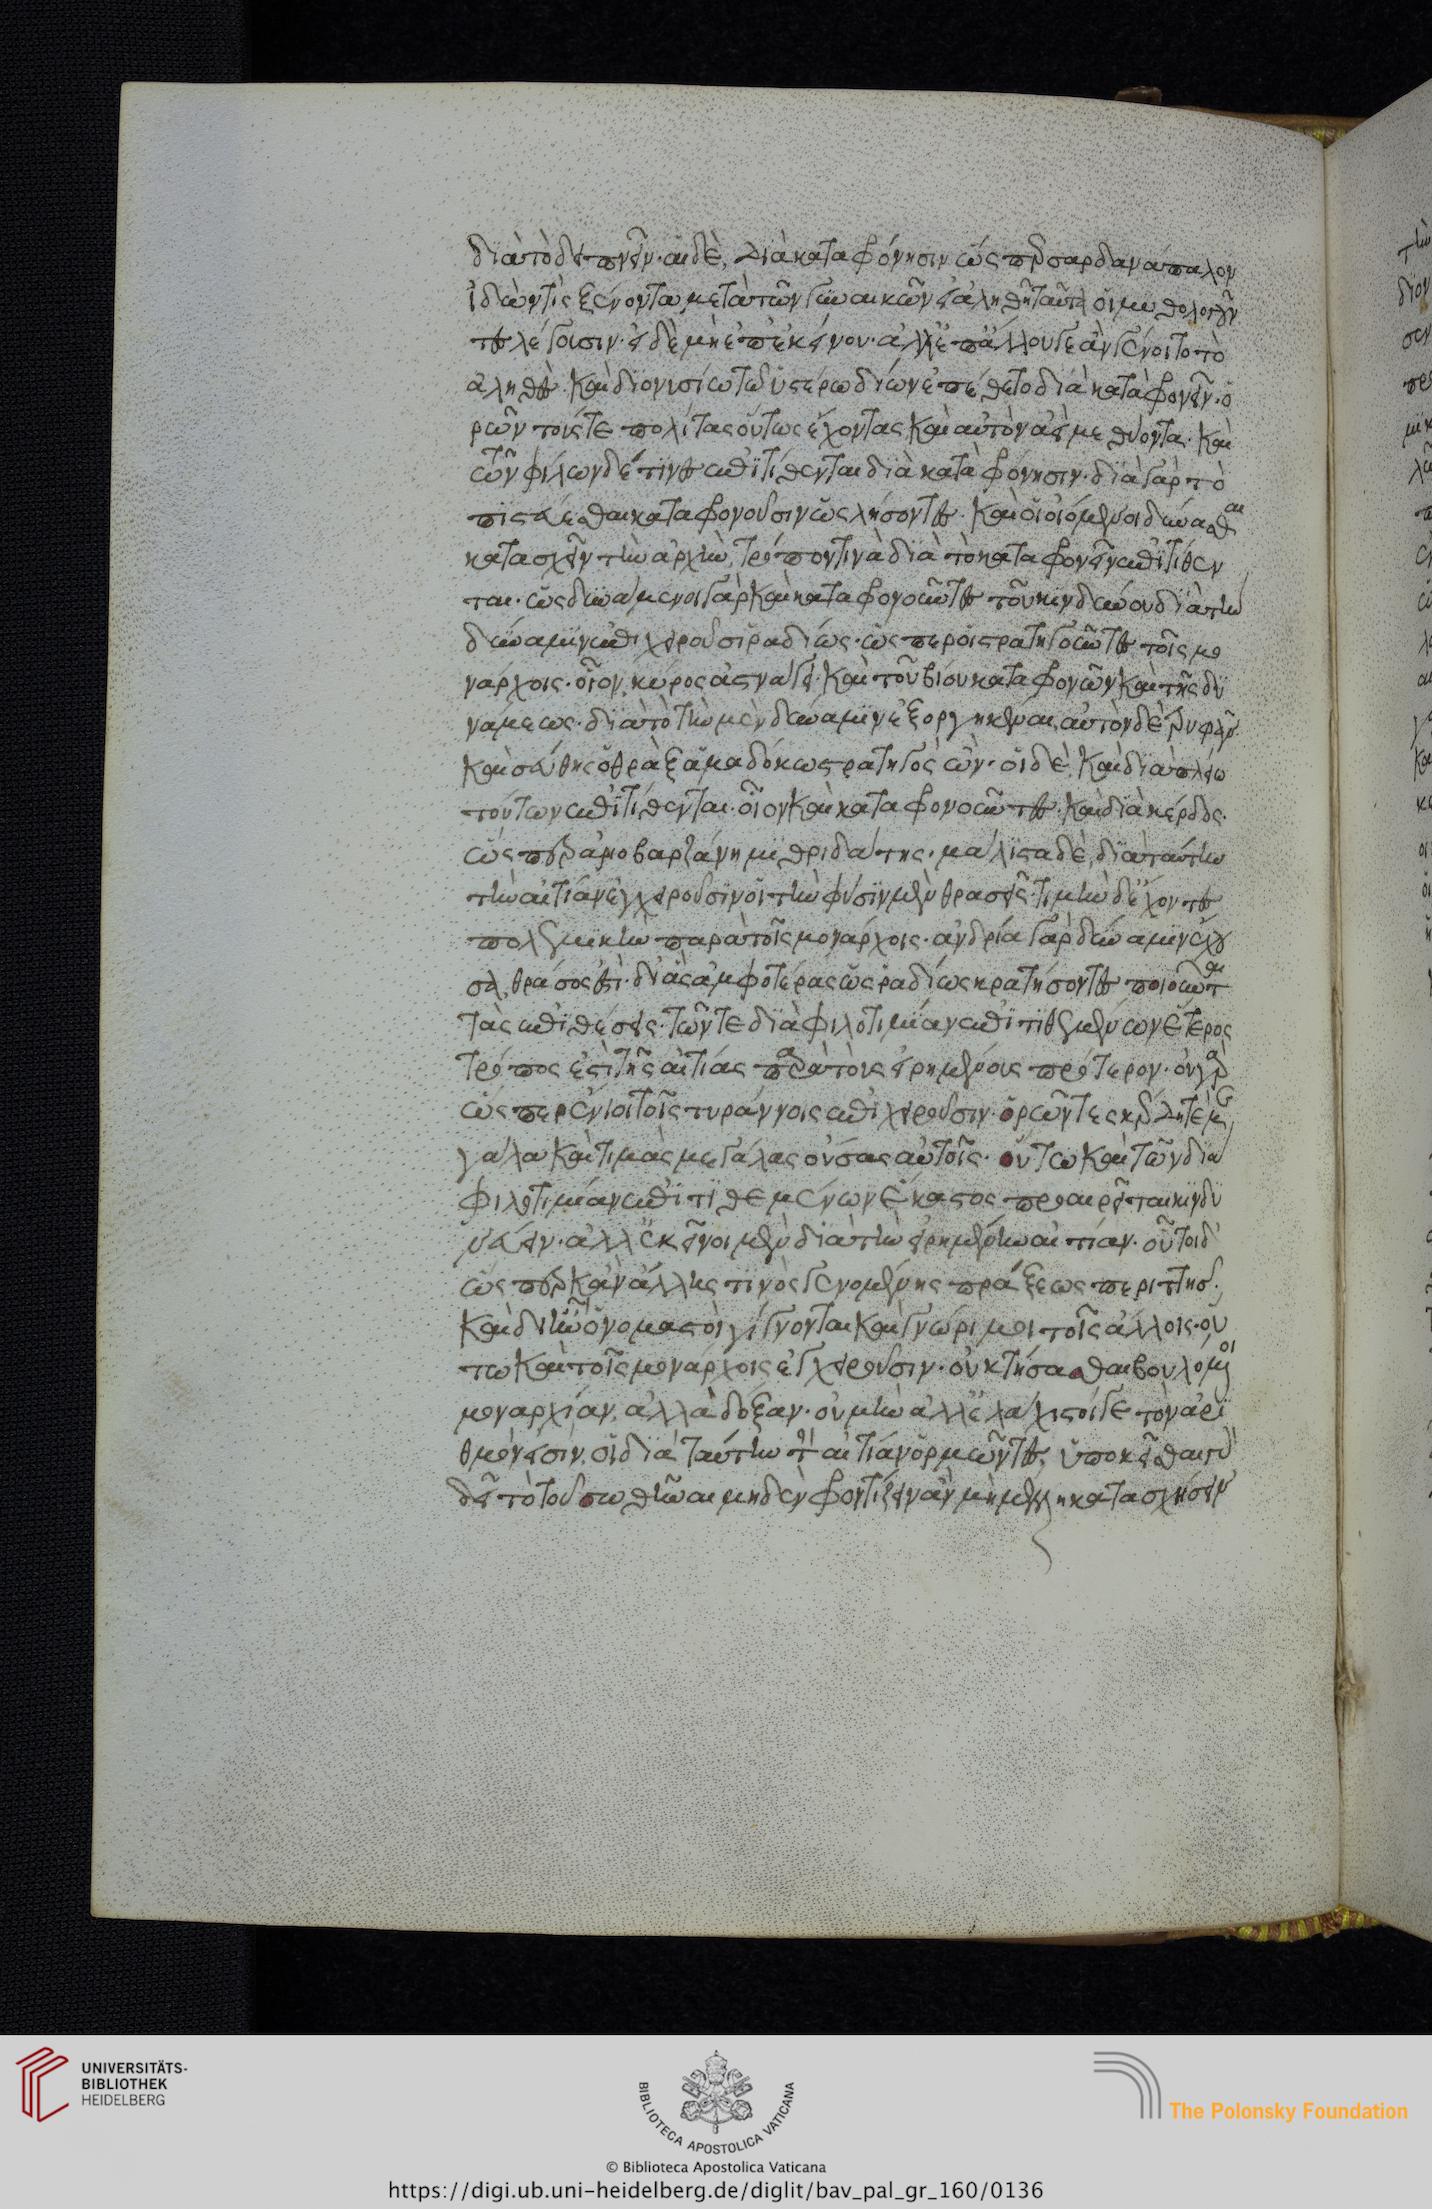 διὰ τὸ δειπνεῖν· αἱ δὲ, διὰ καταφρόνησιν ὥσπερ σαρδανάπαλον
ἰδών τις ξαίνοντα μετὰ τῶν γυναικῶν εἰ ἀληθῆ ταῦτα οἱ μυθολογοῦν
τες λέγουσιν· εἰ δὲ μὴ ἐπ' ἐκείνου· ἀλλ' ἐπ' ἄλλου γε ἂν γένοιτο τὸ
ἀληθές. καὶ διονυσίω τῶ ὑστέρω δίων ἐπέθετο διὰ καταφρονεῖν· ὁ
ρῶν τούς τε πολίτας οὕτως ἔχοντας καὶ αὐτὸν ἀεὶ μεθύοντα. καὶ
τῶν φίλων δέ τινες ἐπιτίθενται διὰ καταφρόνησιν· διὰ γὰρ τὸ
πιστεύεσθαι καταφρονοῦσιν ὡς λήσοντες. καὶ οἱ οἰόμενοι δύνασθαι
κατασχεῖν τὴν ἀρχὴν, τρόπον τινὰ διὰ τὸ καταφρονεῖν ἐπιτίθεν
ται· ὡς δυνάμενοι γὰρ καὶ καταφρονοῦντες τοῦ κινδύνου διὰ τὴν
δύναμιν ἐπιχειροῦσι ῥαδίως· ὥσπερ οἱ στρατηγοῦντες τοῖς μο
νάρχοις· οἷον κύρος ἀστυάγει· καὶ τοῦ βίου καταφρονῶν καὶ τῆς δυ
νάμεως· διὰ τὸ τὴν μὲν δύναμιν ἐξαργηκέναι, αὐτὸν δὲ τρυφᾶν·
καὶ σεύθης ὁ θρὰξ ἀμαδόκω στρατηγὸς ὢν· οἱ δὲ, καὶ διὰ πλείω
τούτων ἐπιτίθενται· οἷον καὶ καταφρονοῦντες· καὶ διὰ κέρδος·
ὥσπερ ἀριοβαρζάνη μιθριδάτης· μάλιστα δὲ, διὰ ταύτην
τὴν αἰτίαν ἐγχειροῦσιν οἱ τὴν φύσιν μὲν θρασεῖς· τιμὴν δ' ἔχοντες
πολεμικὴν παρὰ τοῖς μονάρχοις· ἀνδρία γὰρ δύναμιν ἔχου
σα, θράσος ἐστί· δι' ἃς ἀμφοτέρας ὡς ῥαδίως κρατήσοντες ποιοῦνται
τὰς ἐπιθέσεις· τῶν τε διὰ φιλοτιμίαν ἐπιτιθεμένων ἕτερος
τρόπος ἐστὶ τῆς αἰτίας παρὰ τοὺς εἰρημένους πρότερον· οὐ γὰρ
ὥσπερ ἔνιοι τοῖς τυράννοις ἐπιχειροῦσιν· ὁρῶντες κέρδη τε με
γάλα καὶ τιμὰς μεγάλας οὔσας αὐτοῖς· οὕτω καὶ τῶν διὰ
φιλοτιμίαν ἐπιτιθεμένων ἕκαστος προαιρεῖται κινδυ
νεύειν· ἀλλ' ἐκεῖνοι μὲν διὰ τὴν εἰρημένην αἰτίαν· οὗτοι δ'
ὥσπερ κἂν ἄλλης τινὸς γενομένης πράξεως περιττῆς·
καὶ δι' ἣν ὀνομαστοὶ γίγνονται καὶ γνώριμοι τοῖς ἄλλοις· οὕ
τω καὶ τοῖς μονάρχοις ἐγχειροῦσιν· οὐ κτήσασθαι βουλόμενοι
μοναρχίαν, ἀλλὰ δόξαν· οὐ μὴν ἀλλ' ἐλάχιστοί γε τὸν ἀρι
θμόν εἰσιν, οἱ διὰ ταύτην τὴν αἰτίαν ὁρμῶντες, ὑποκεῖσθαι γὰρ
δεῖ τὸ τοῦ σωθῆναι μηδὲν φροντίζειν ἂν μὴ μέλλη κατασχήσειν
UNIVERSITÄTS-
BIBLIOTHEK
HEIDELBERG
BIBLIOTECA APOSTOLICA VATICANA
The Polonsky Foundation
© Biblioteca Apostolica Vaticana
https://digi.ub.uni-heidelberg.de/diglit/bav_pal_gr_160/0136